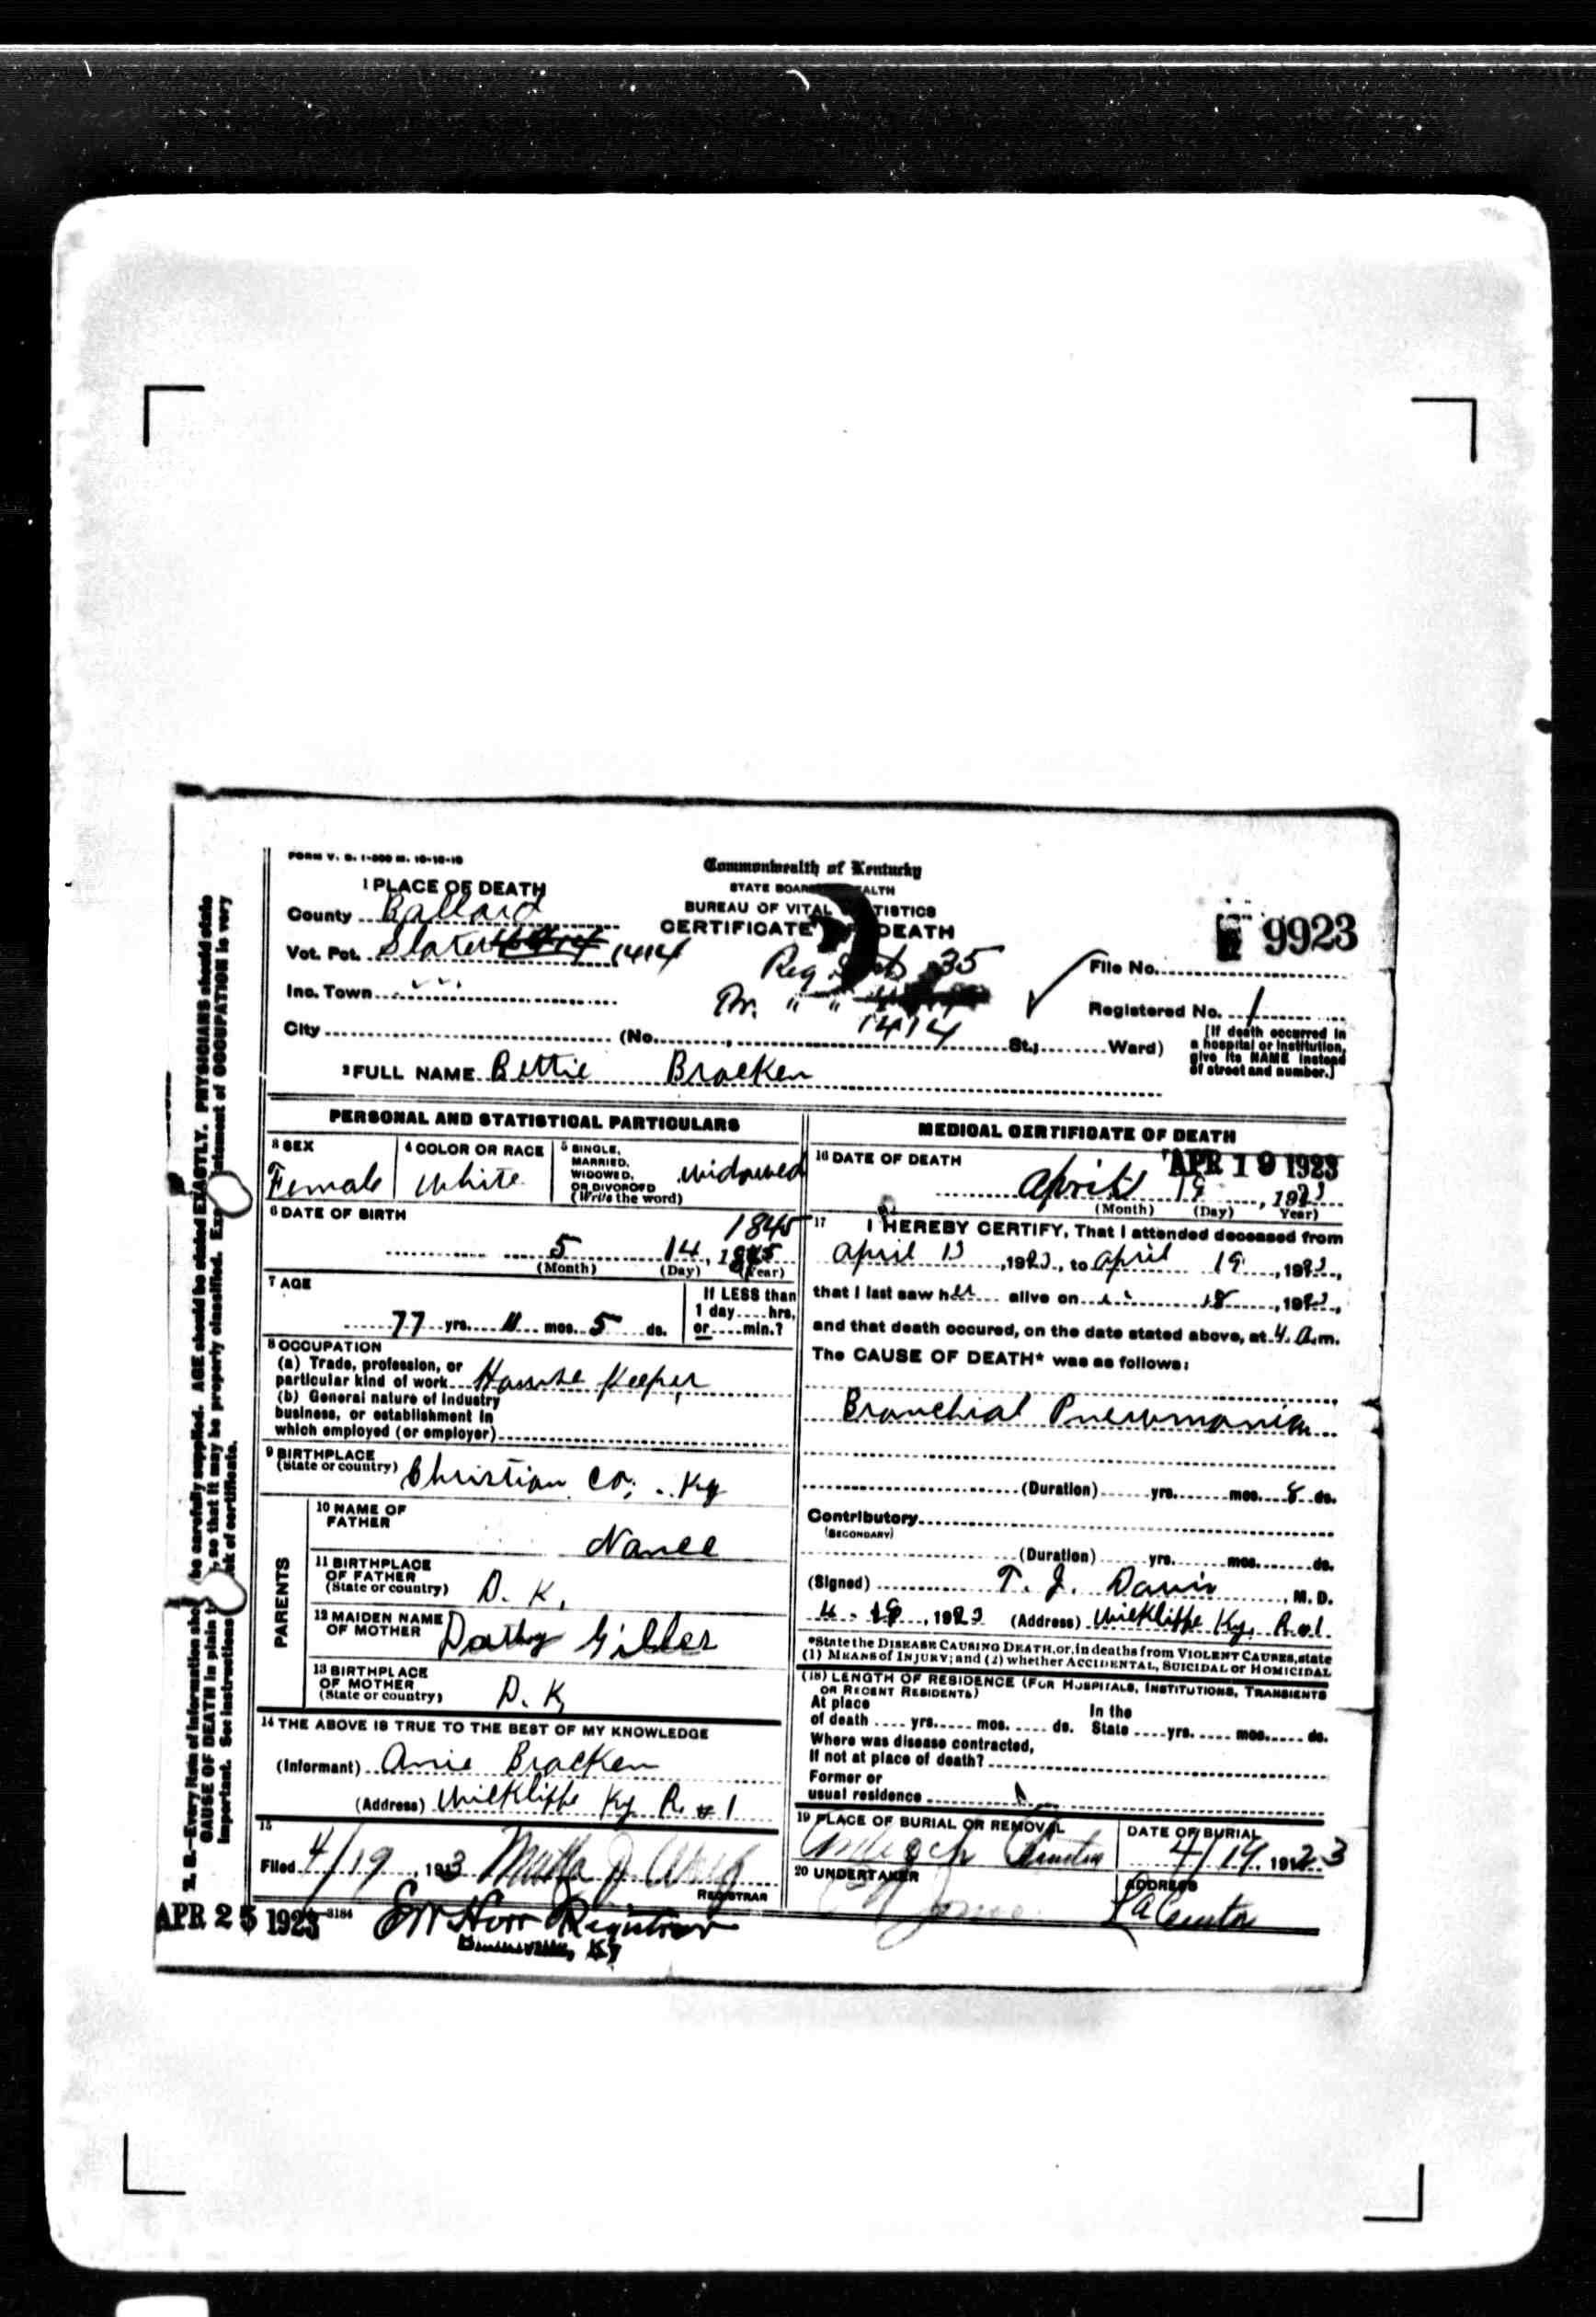 FORM V. S. 1-500 M. 10-16-19
Commonwealth of Kentucky
STATE BOARD HEALTH
BUREAU OF VITAL STATISTICS
CERTIFICATE OF DEATH
1 PLACE OF DEATH
County Ballard
Vot. Pct. Slater 1414
Inc. Town
City (No. , St.; Ward)
Reg Dist 35
Pr. " "
1414
9923
File No.
Registered No. 1
[If death occurred in
a hospital or institution,
give its NAME instead
of street and number.]
2 FULL NAME Bettie Bracken
PERSONAL AND STATISTICAL PARTICULARS
3 SEX
Female
4 COLOR OR RACE
White
5 SINGLE,
MARRIED,
WIDOWED,
OR DIVORCED
(Write the word)
Widowed
6 DATE OF BIRTH
1845
5 14, 1845
(Month) (Day) (Year)
7 AGE
77 yrs. 11 mos. 5 ds.
If LESS than
1 day hrs.
or min.?
8 OCCUPATION
(a) Trade, profession, or
particular kind of work House Keeper
(b) General nature of industry
business, or establishment in
which employed (or employer)
9 BIRTHPLACE
(State or country) Christian Co; Ky
PARENTS
10 NAME OF
FATHER
Nance
11 BIRTHPLACE
OF FATHER
(State or country) D. K.
12 MAIDEN NAME
OF MOTHER
13 BIRTHPLACE
OF MOTHER
(State or country) D. K
14 THE ABOVE IS TRUE TO THE BEST OF MY KNOWLEDGE
(Informant) Anie Bracken
(Address) Wickliffe Ky R # 1
15
Filed 4/19, 1923
REGISTRAR
APR 25 1923
3184
Registrar
MEDICAL CERTIFICATE OF DEATH
16 DATE OF DEATH
APR 19 1923
April 19, 1923
(Month) (Day) Year)
17 I HEREBY CERTIFY, That I attended deceased from
April 13, 1923, to April 19, 1923,
that I last saw her alive on " 18, 1923,
and that death occured, on the date stated above, at 4. a.m.
The CAUSE OF DEATH* was as follows:
Bronchial Pneumonia
(Duration) yrs. mos. 8 ds.
Contributory
(SECONDARY)
(Duration) yrs. mos. ds.
(Signed) T. J. Davis, M. D.
4. 19, 1923 (Address) Wickliffe Ky. R #1.
*State the DISEASE CAUSING DEATH, or, in deaths from VIOLENT CAUSES, state
(1) MEANS of INJURY; and (2) whether ACCIDENTAL, SUICIDAL or HOMICIDAL
(18) LENGTH OF RESIDENCE (FOR HOSPITALS, INSTITUTIONS, TRANSIENTS
OR RECENT RESIDENTS)
At place
of death yrs. mos. ds.
In the
State yrs. mos. ds.
Where was disease contracted,
If not at place of death?
Former or
usual residence
19 PLACE OF BURIAL OR REMOVAL
Antioch
DATE OF BURIAL
4/19. 1923
20 UNDERTAKER
ADDRESS
La Center
N. B.—Every item of information should be carefully supplied. AGE should be stated EXACTLY. PHYSICIANS should state
CAUSE OF DEATH in plain so that it may be properly classified. Exact statement of OCCUPATION is very
important. See instructions back of certificate.